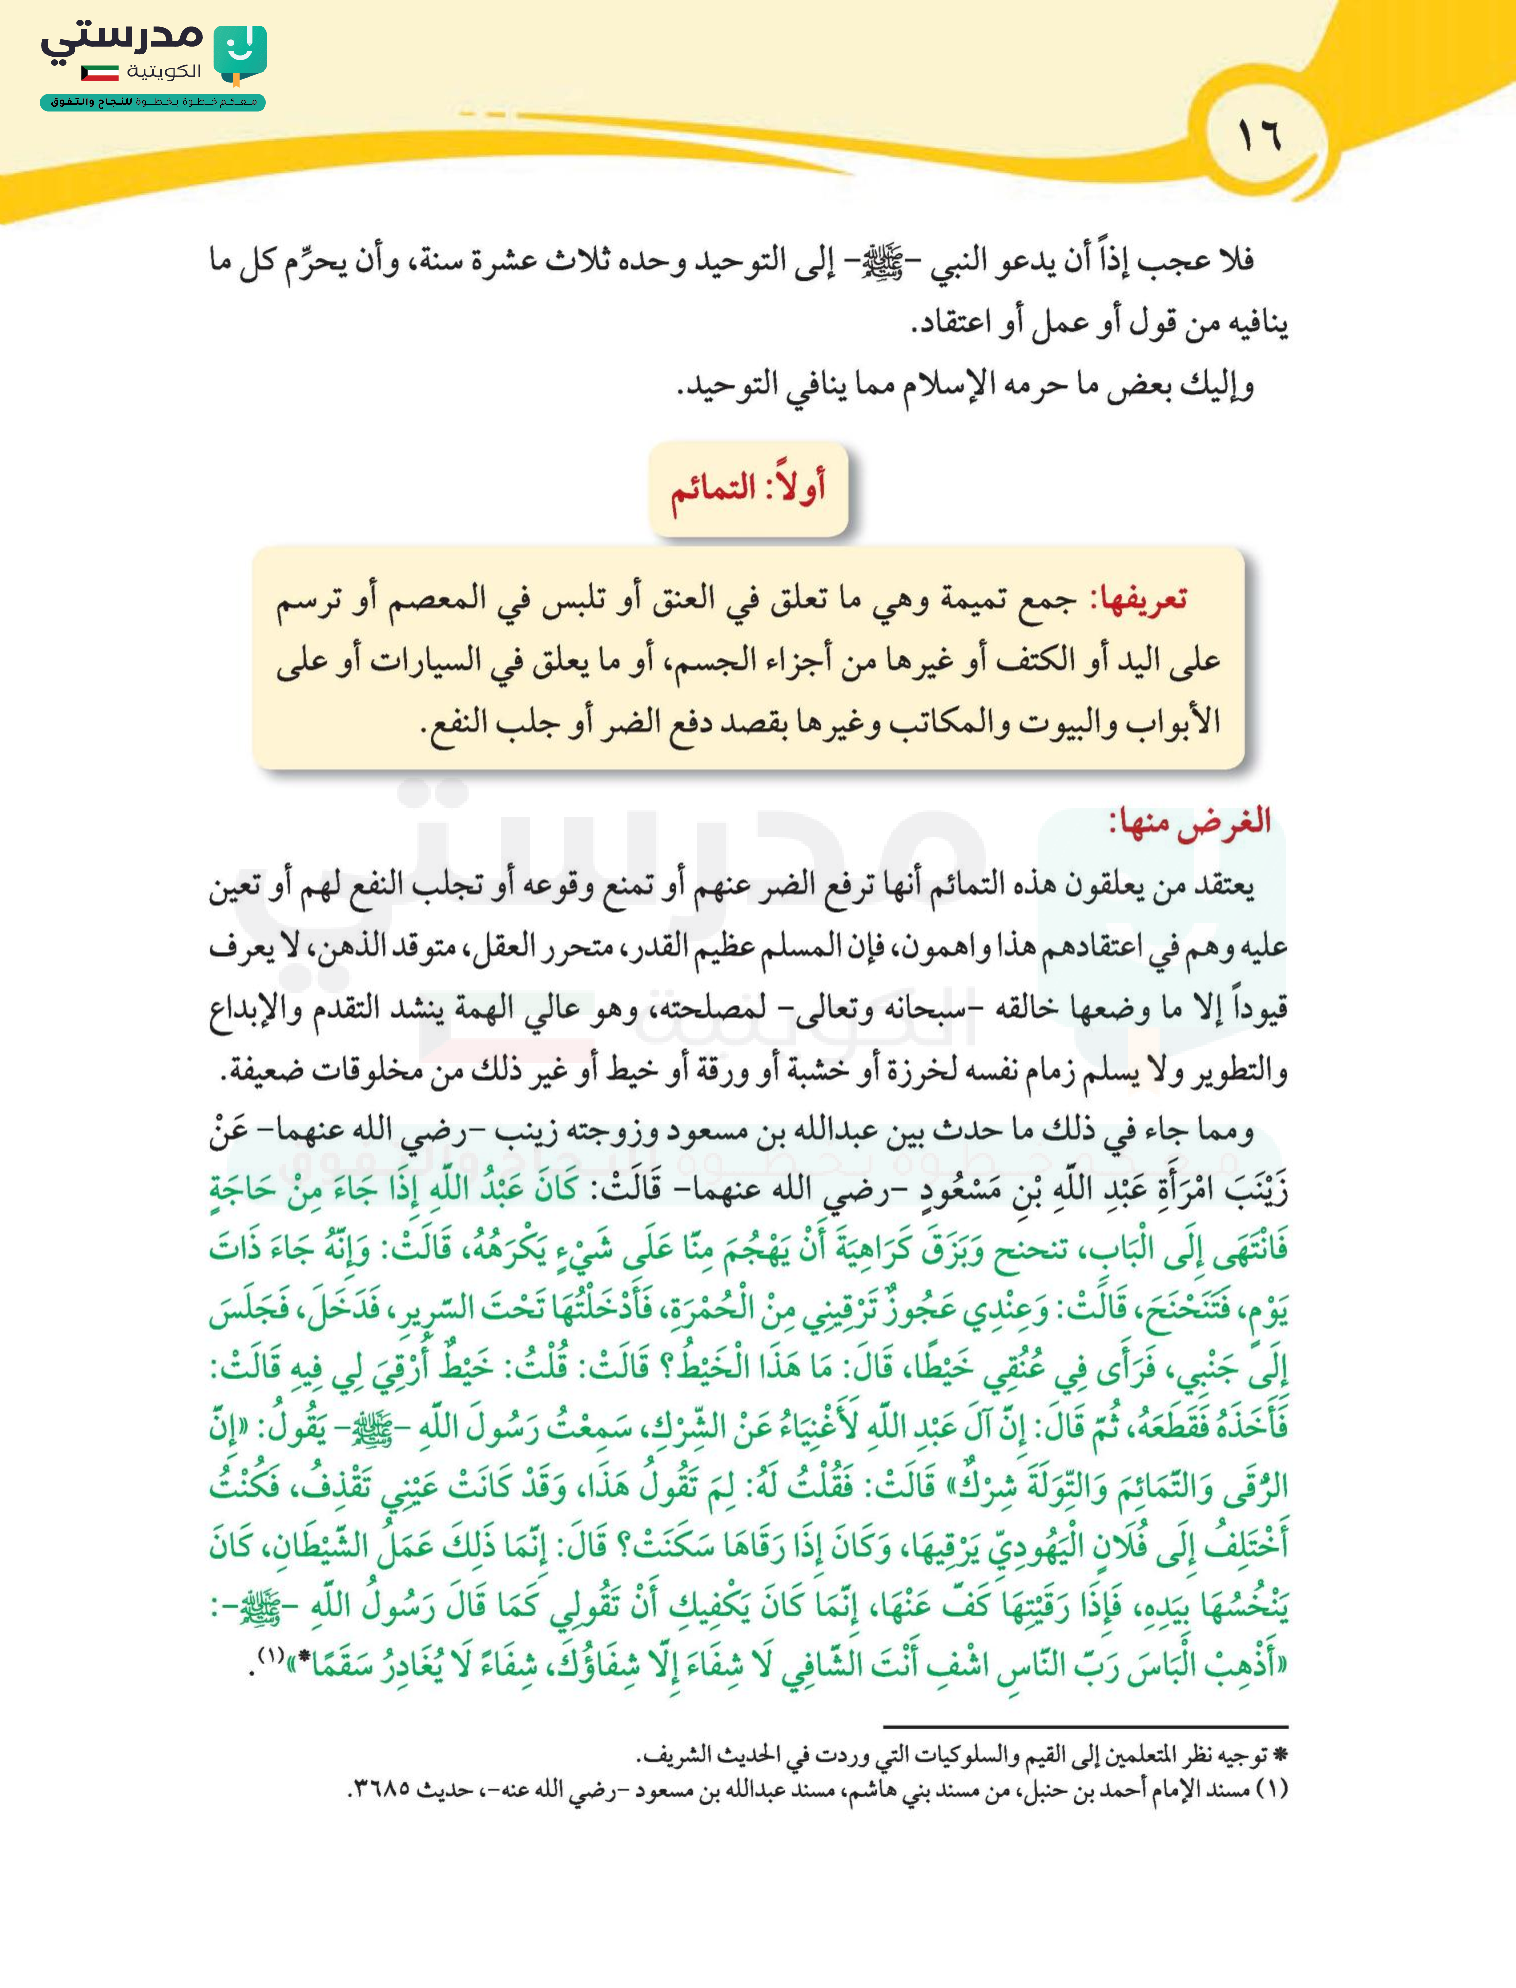 مدرستي
الكويتية
معكم خطوة بخطوة للنجاح والتفوق
١٦
فلا عجب إذاً أن يدعو النبي -ﷺ- إلى التوحيد وحده ثلاث عشرة سنة، وأن يحرِّم كل ما
ينافيه من قول أو عمل أو اعتقاد.
وإليك بعض ما حرمه الإسلام مما ينافي التوحيد.
أولاً: التمائم
تعريفها: جمع تميمة وهي ما تعلق في العنق أو تلبس في المعصم أو ترسم
على اليد أو الكتف أو غيرها من أجزاء الجسم، أو ما يعلق في السيارات أو على
الأبواب والبيوت والمكاتب وغيرها بقصد دفع الضر أو جلب النفع.
الغرض منها:
يعتقد من يعلقون هذه التمائم أنها ترفع الضر عنهم أو تمنع وقوعه أو تجلب النفع لهم أو تعين
عليه وهم في اعتقادهم هذا واهمون، فإن المسلم عظيم القدر، متحرر العقل، متوقد الذهن، لا يعرف
قيوداً إلا ما وضعها خالقه -سبحانه وتعالى- لمصلحته، وهو عالي الهمة ينشد التقدم والإبداع
والتطوير ولا يسلم زمام نفسه لخرزة أو خشبة أو ورقة أو خيط أو غير ذلك من مخلوقات ضعيفة.
ومما جاء في ذلك ما حدث بين عبدالله بن مسعود وزوجته زينب -رضي الله عنهما- عَنْ
زَيْنَبَ امْرَأَةِ عَبْدِ اللَّهِ بْنِ مَسْعُودٍ -رضي الله عنهما- قَالَتْ: كَانَ عَبْدُ اللَّهِ إِذَا جَاءَ مِنْ حَاجَةٍ
فَانْتَهَى إِلَى الْبَابِ، تنحنح وَبَزَقَ كَرَاهِيَةَ أَنْ يَهْجُمَ مِنَّا عَلَى شَيْءٍ يَكْرَهُهُ، قَالَتْ: وَإِنَّهُ جَاءَ ذَاتَ
يَوْمٍ، فَتَنَحْنَحَ، قَالَتْ: وَعِنْدِي عَجُوزٌ تَرْقِينِي مِنْ الْحُمْرَةِ، فَأَدْخَلْتُهَا تَحْتَ السَّرِيرِ، فَدَخَلَ، فَجَلَسَ
إِلَى جَنْبِي، فَرَأَى فِي عُنُقِي خَيْطًا، قَالَ: مَا هَذَا الْخَيْطُ؟ قَالَتْ: قُلْتُ: خَيْطٌ أُرْقِيَ لِي فِيهِ قَالَتْ:
فَأَخَذَهُ فَقَطَعَهُ، ثُمَّ قَالَ: إِنَّ آلَ عَبْدِ اللَّهِ لَأَغْنِيَاءُ عَنْ الشِّرْكِ، سَمِعْتُ رَسُولَ اللَّهِ -ﷺ- يَقُولُ: «إِنَّ
الرُّقَى وَالتَّمَائِمَ وَالتِّوَلَةَ شِرْكٌ» قَالَتْ: فَقُلْتُ لَهُ: لِمَ تَقُولُ هَذَا، وَقَدْ كَانَتْ عَيْنِي تَقْذِفُ، فَكُنْتُ
أَخْتَلِفُ إِلَى فُلَانٍ الْيَهُودِيِّ يَرْقِيهَا، وَكَانَ إِذَا رَقَاهَا سَكَنَتْ؟ قَالَ: إِنَّمَا ذَلِكَ عَمَلُ الشَّيْطَانِ، كَانَ
يَنْخُسُهَا بِيَدِهِ، فَإِذَا رَقَيْتِهَا كَفَّ عَنْهَا، إِنَّمَا كَانَ يَكْفِيكِ أَنْ تَقُولِي كَمَا قَالَ رَسُولُ اللَّهِ -ﷺ-:
«أَذْهِبْ الْبَاسَ رَبَّ النَّاسِ اشْفِ أَنْتَ الشَّافِي لَا شِفَاءَ إِلَّا شِفَاؤُكَ، شِفَاءً لَا يُغَادِرُ سَقَمًا*»(١).
* توجيه نظر المتعلمين إلى القيم والسلوكيات التي وردت في الحديث الشريف.
(١) مسند الإمام أحمد بن حنبل، من مسند بني هاشم، مسند عبدالله بن مسعود -رضي الله عنه-، حديث ٣٦٨٥.